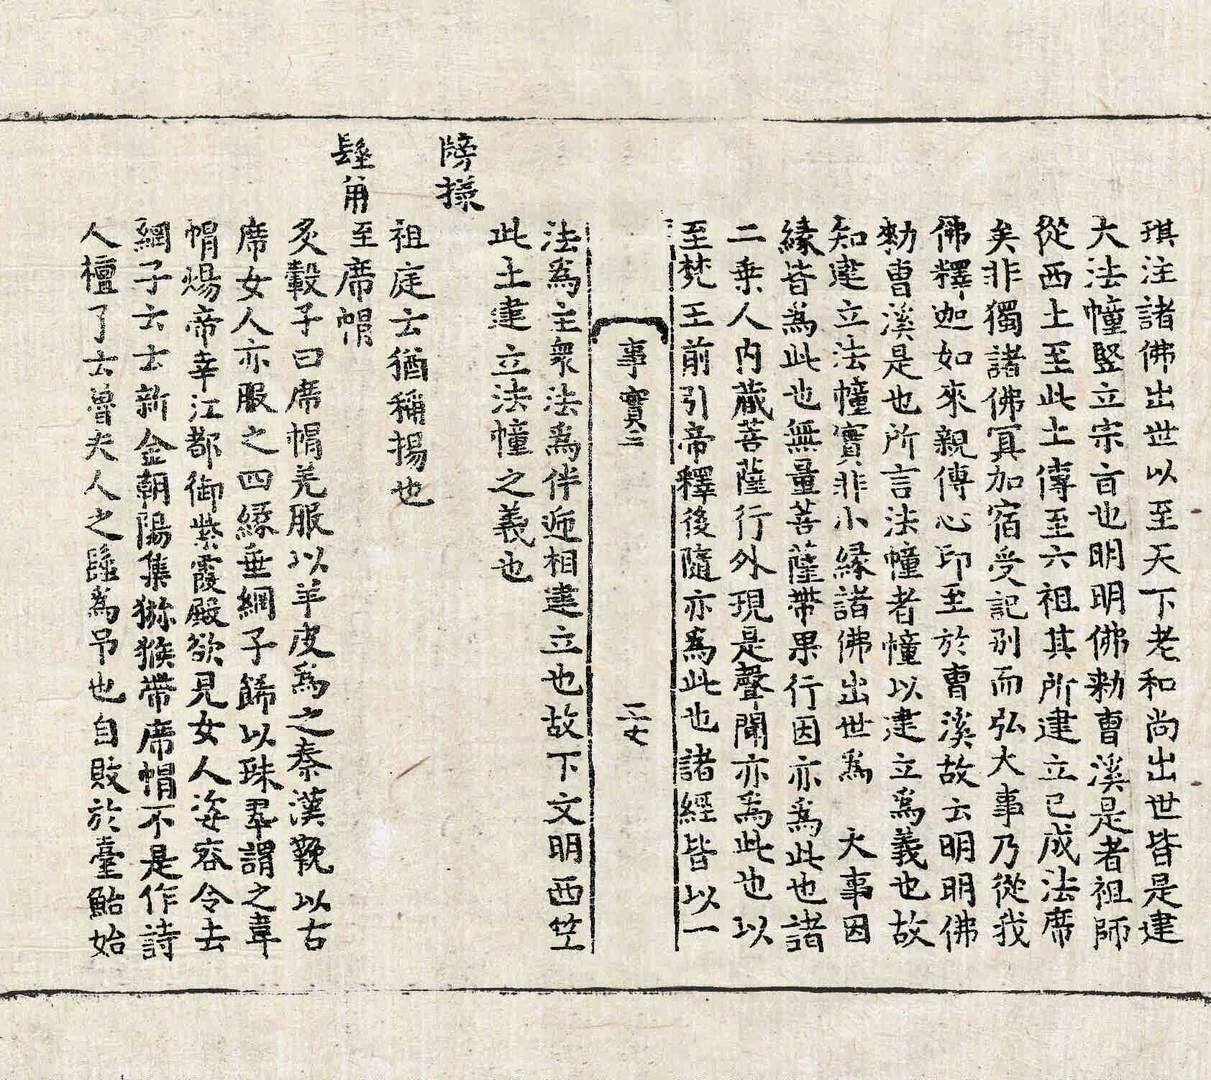 琪注諸佛出世以至天下老和尚出世皆是建
大法幢竪立宗旨也明明佛勅曹溪是者祖師
從西土至此土傳至六祖其所建立已成法席
矣非獨諸佛冥加宿受記別而弘大事乃從我
佛釋迦如來親傳心印至於曹溪故云明明佛
勅曹溪是也所言法幢者幢以建立爲義也故
知建立法幢實非小緣諸佛出世爲 大事因
緣皆爲此也無量菩薩帶果行因亦爲此也諸
二乗人內藏菩薩行外現是聲聞亦爲此也以
至梵王前引帝釋後隨亦爲此也諸經皆以一
事實三 二七
法爲主衆法爲伴逓相建立也故下文明西竺
此土建立法幢之義也
牓㨾
祖庭云猶稱揚也
至席帽
炙轂子曰席帽羌服以羊皮爲之秦漢鞔以古
席女人亦服之四緣垂網子飾以珠翠謂之韋
帽煬帝幸江都御紫霞殿欲見女人姿容令去
網子云士新金朝陽集獼猴帶席帽不是作詩
人檀了云魯夫人之髽爲吊也自敗於臺鮐始